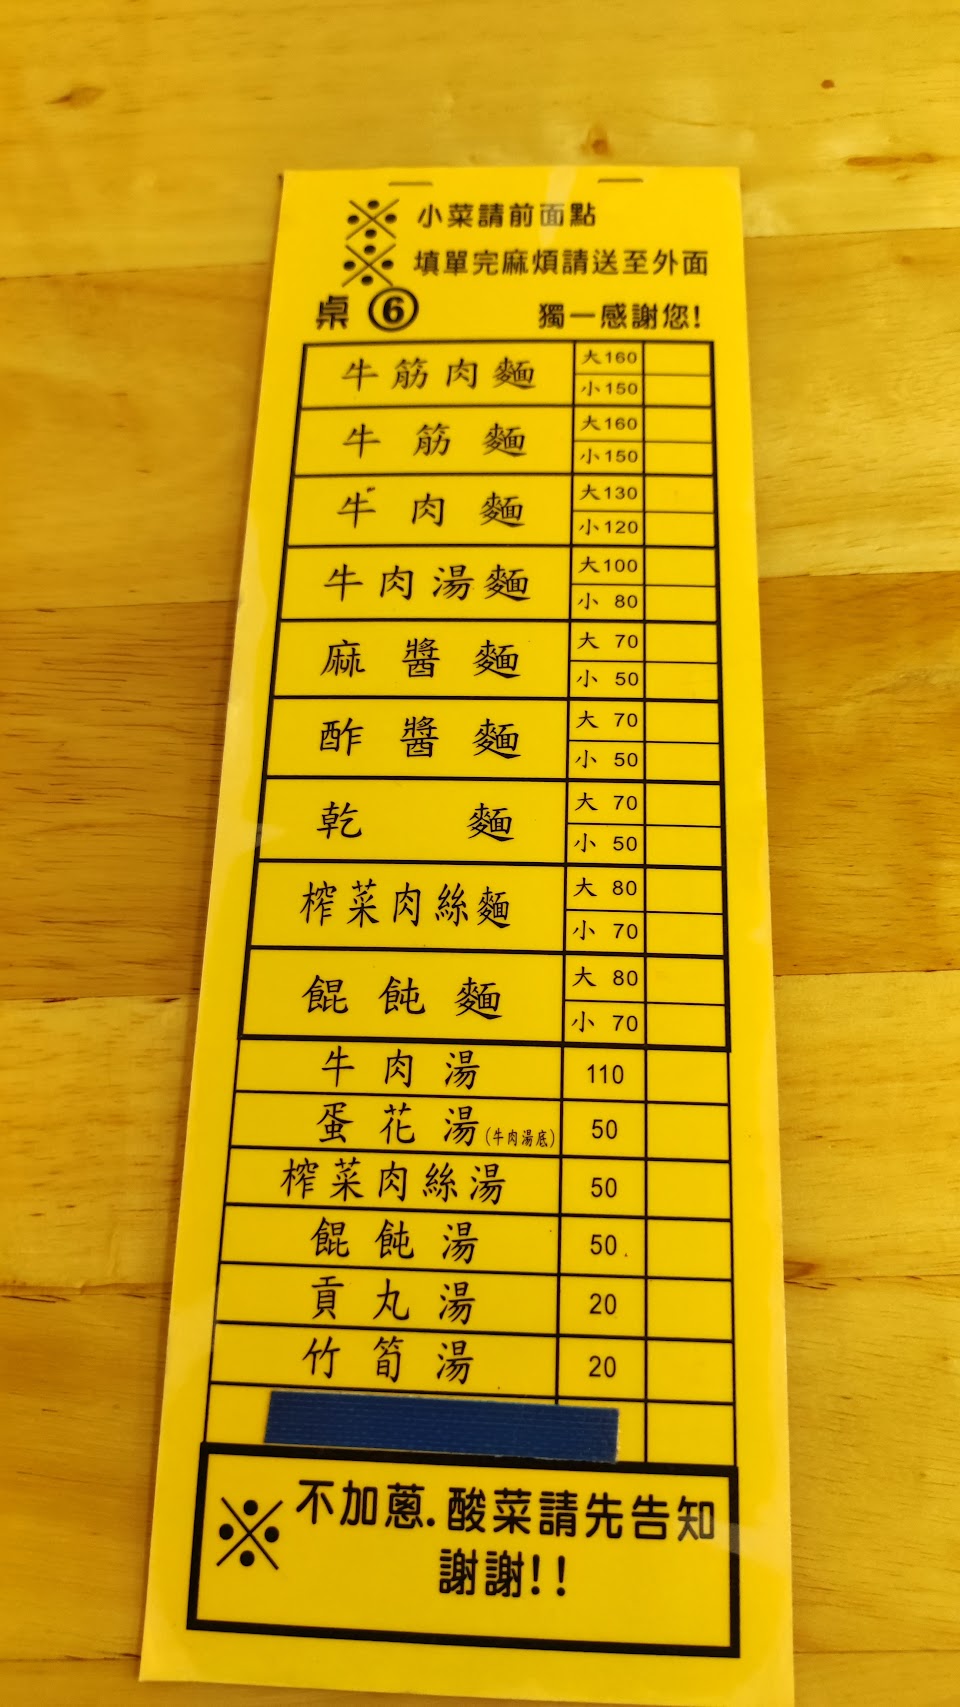 ※小菜請前面點
※填單完麻煩請送至外面
桌 ⑥ 獨一感謝您!
牛筋肉麵 大160
小150
牛筋麵 大160
小150
牛肉麵 大130
小120
牛肉湯麵 大100
小 80
麻醬麵 大 70
小 50
酢醬麵 大 70
小 50
乾麵 大 70
小 50
榨菜肉絲麵 大 80
小 70
餛飩麵 大 80
小 70
牛肉湯 110
蛋花湯(牛肉湯底) 50
榨菜肉絲湯 50
餛飩湯 50
貢丸湯 20
竹筍湯 20
※不加蔥.酸菜請先告知
謝謝!!